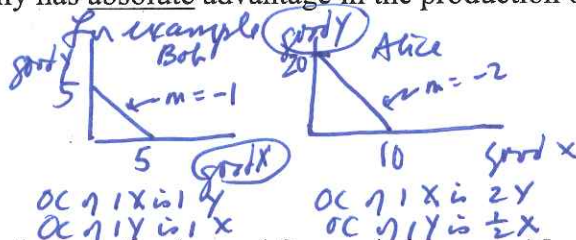 ly has absolute advantage in the production o
for example
good Y Bob
5
m = -1
5 good X
OC of 1X is 1 Y
OC of 1Y is 1 X
good Y Alice
20
m = -2
10 good x
OC of 1 X is 2Y
OC of 1Y is ½X